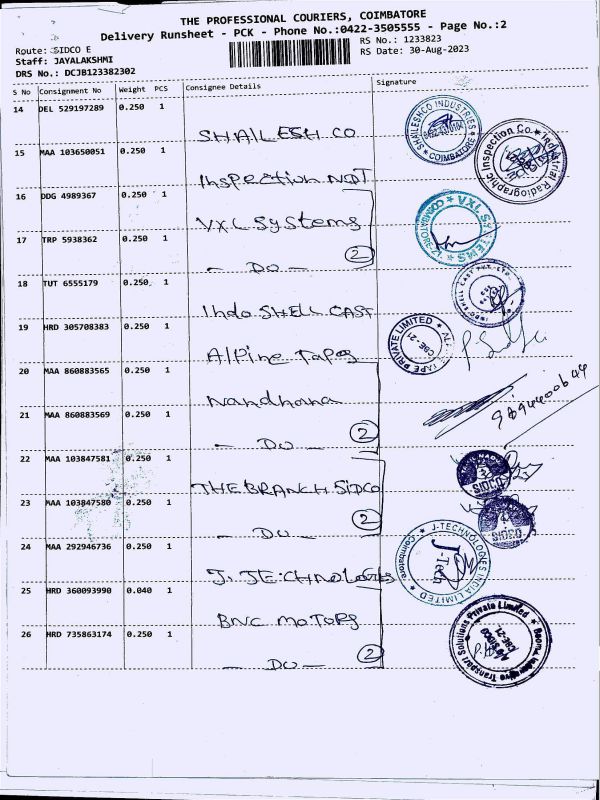 THE PROFESSIONAL COURIERS, COIMBATORE
Delivery Runsheet - PCK - Phone No.:0422-3505555 - Page No.:2
Route: SIDCO E
RS No.: 1233823
Staff: JAYALAKSHMI
RS Date: 30-Aug-2023
DRS No.: DCJB123382302
S No Consignment No Weight PCS Consignee Details Signature
14 DEL 529197289 0.250 1
SHAILESH CO
SHAILESHCO INDUSTRIES ★ COIMBATORE ★
15 MAA 103650051 0.250 1
Inspection NDT
Industrial Radiographic Inspection Co.
16 DDG 4989367 0.250 1
VXL Systems
VXL SYSTEMS ★ COIMBATORE
17 TRP 5938362 0.250 1
- DO - 2
18 TUT 6555179 0.250 1
Indo SHELL CAST
INDO SHELL CAST PVT. LTD.
19 HRD 305708383 0.250 1
Alpine Tapes
TAPE PRIVATE LIMITED ★ CBE-21
20 MAA 860883565 0.250 1
Nandhana
21 MAA 860883569 0.250 1
- DO - 2
22 MAA 103847581 0.250 1
THE BRANCH SIDCO
SIDCO
23 MAA 103847580 0.250 1
- DO - 2
SIDCO
24 MAA 292946736 0.250 1
J. TECHNOLOGIES
J-TECHNOLOGIES INDIA LIMITED ★ Coimbatore ★
J-Tech
25 HRD 360093990 0.040 1
BNC MOTORS
26 HRD 735863174 0.250 1
- DO - 2
Transport Solutions Private Limited
SIDCO
CBE-21.